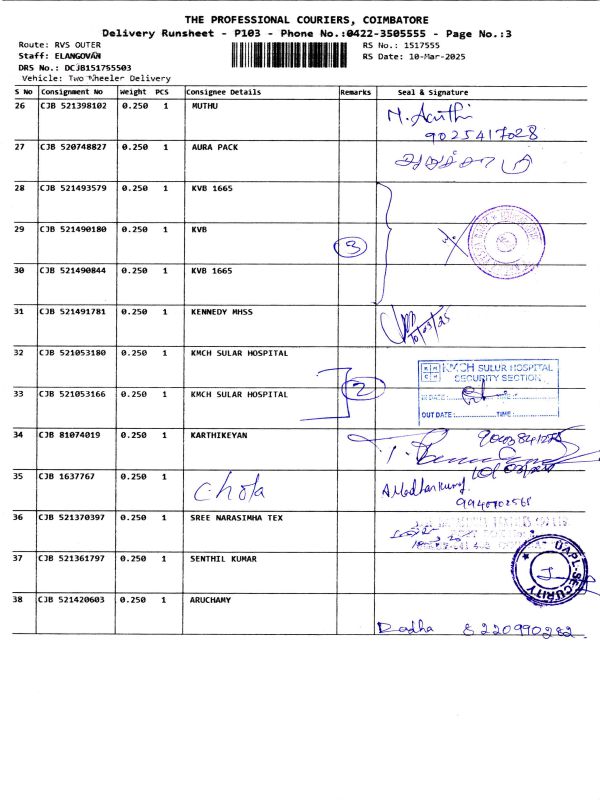 THE PROFESSIONAL COURIERS, COIMBATORE
Delivery Runsheet - P103 - Phone No.:0422-3505555 - Page No.:3
Route: RVS OUTER
RS No.: 1517555
Staff: ELANGOVAN
RS Date: 10-Mar-2025
DRS No.: DCJB151755503
Vehicle: Two Wheeler Delivery
S No Consignment No Weight PCS Consignee Details Remarks Seal & signature
26 CJB 521398102 0.250 1 MUTHU
9025417028
27 CJB 520748827 0.250 1 AURA PACK
28 CJB 521493579 0.250 1 KVB 1665
29 CJB 521490180 0.250 1 KVB 3
30 CJB 521490844 0.250 1 KVB 1665
31 CJB 521491781 0.250 1 KENNEDY MHSS
10/03/25
32 CJB 521053180 0.250 1 KMCH SULAR HOSPITAL
KMCH SULUR HOSPITAL
SECURITY SECTION
33 CJB 521053166 0.250 1 KMCH SULAR HOSPITAL 2
IN DATE: TIME:
OUT DATE: TIME:
34 CJB 81074019 0.250 1 KARTHIKEYAN
35 CJB 1637767 0.250 1 chola
36 CJB 521370397 0.250 1 SREE NARASIMHA TEX
37 CJB 521361797 0.250 1 SENTHIL KUMAR
UAPL-SECURITY
38 CJB 521420603 0.250 1 ARUCHAMY
Radha 8220990282